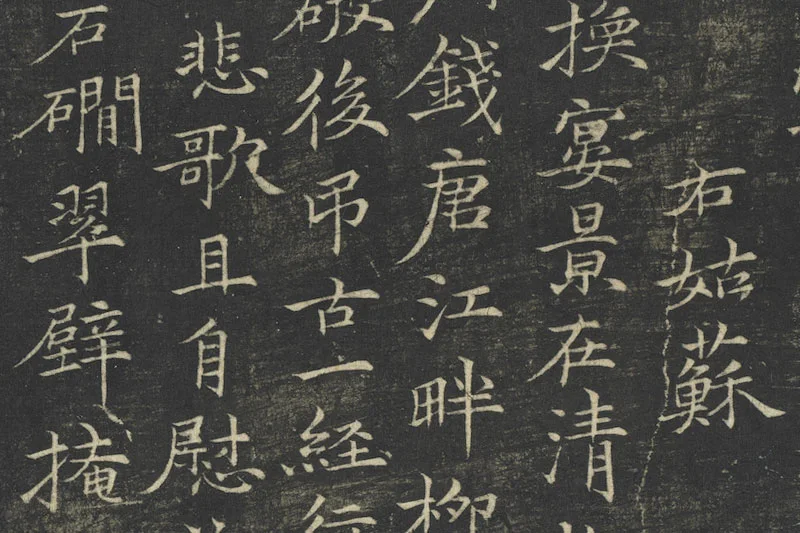 右姑蘇
換宴景在清
錢唐江畔柳
破後吊古一経行
悲歌且自慰
石磵翠壁掩